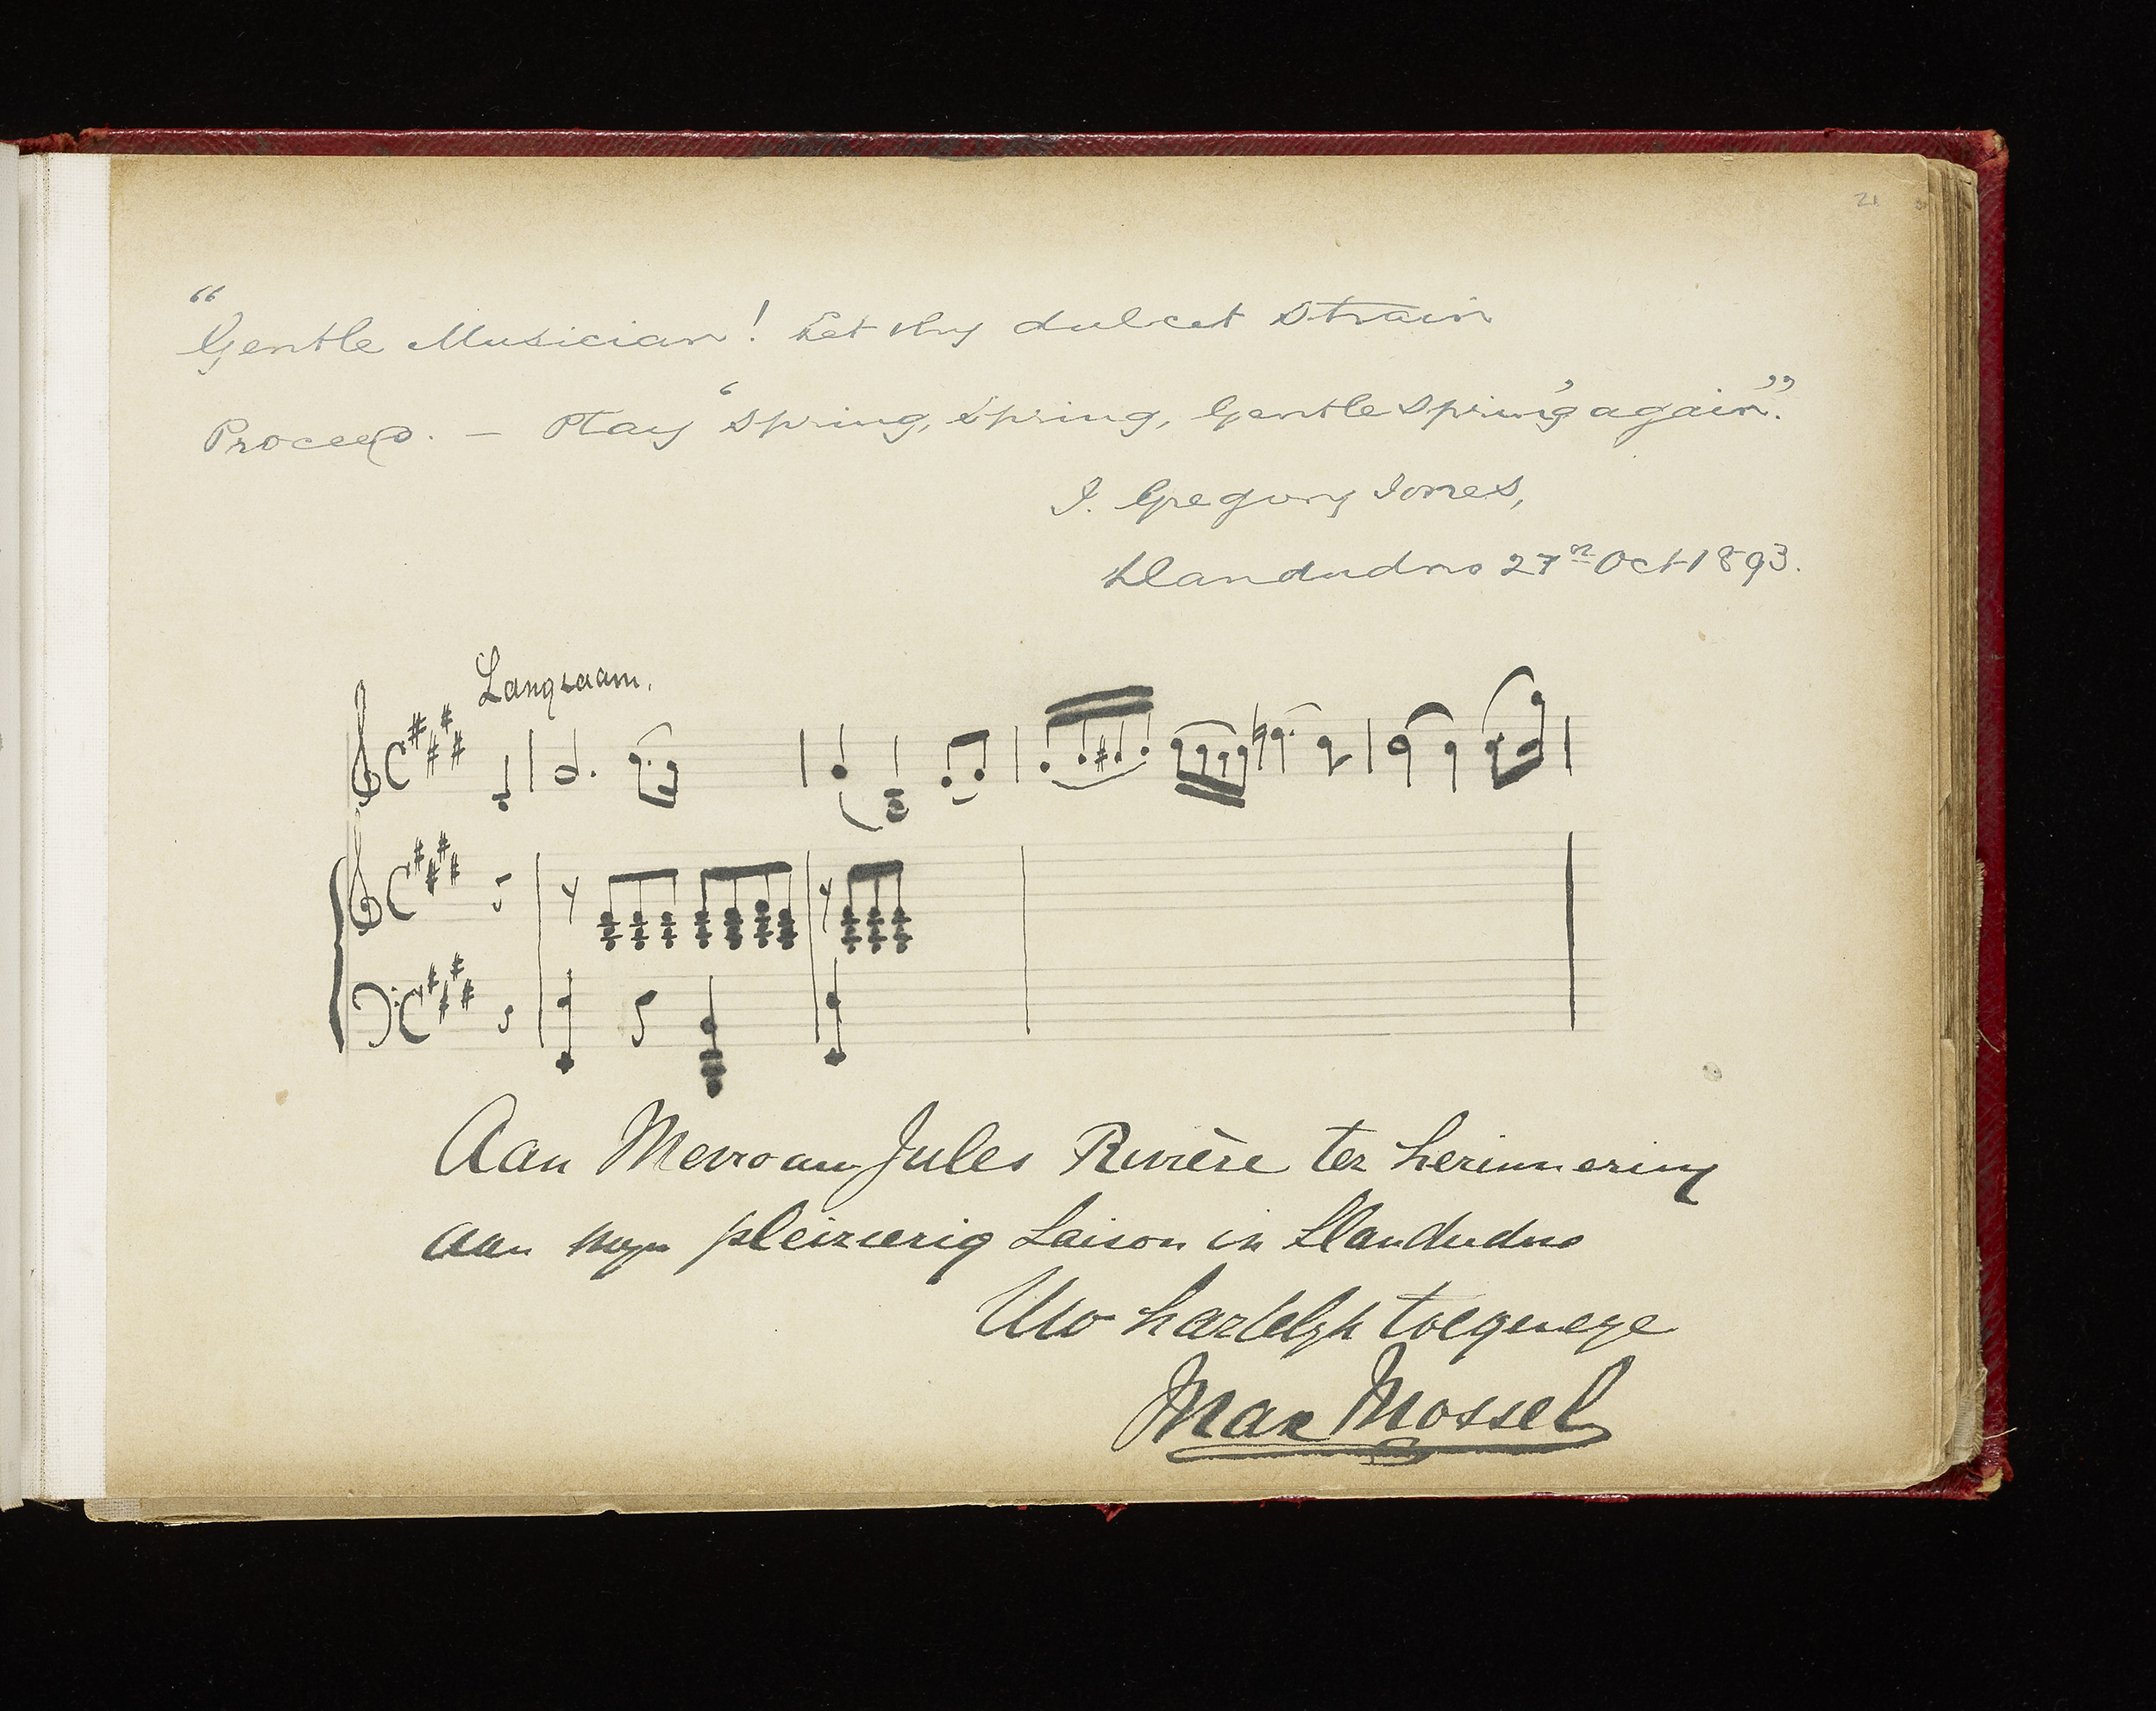 21
“Gentle Musician! Let thy dulcet strain
Proceed. — Play ‘Spring, Spring, Gentle Spring’ again.”
I. Gregory Jones,
Llandudno 27th Oct 1893.
Langzaam.
Aan Mevrouw Jules Rivière ter herinnering
aan myn pleizierig Saison in Llandudno
Uw hartelyk toegenege
Max Mossel